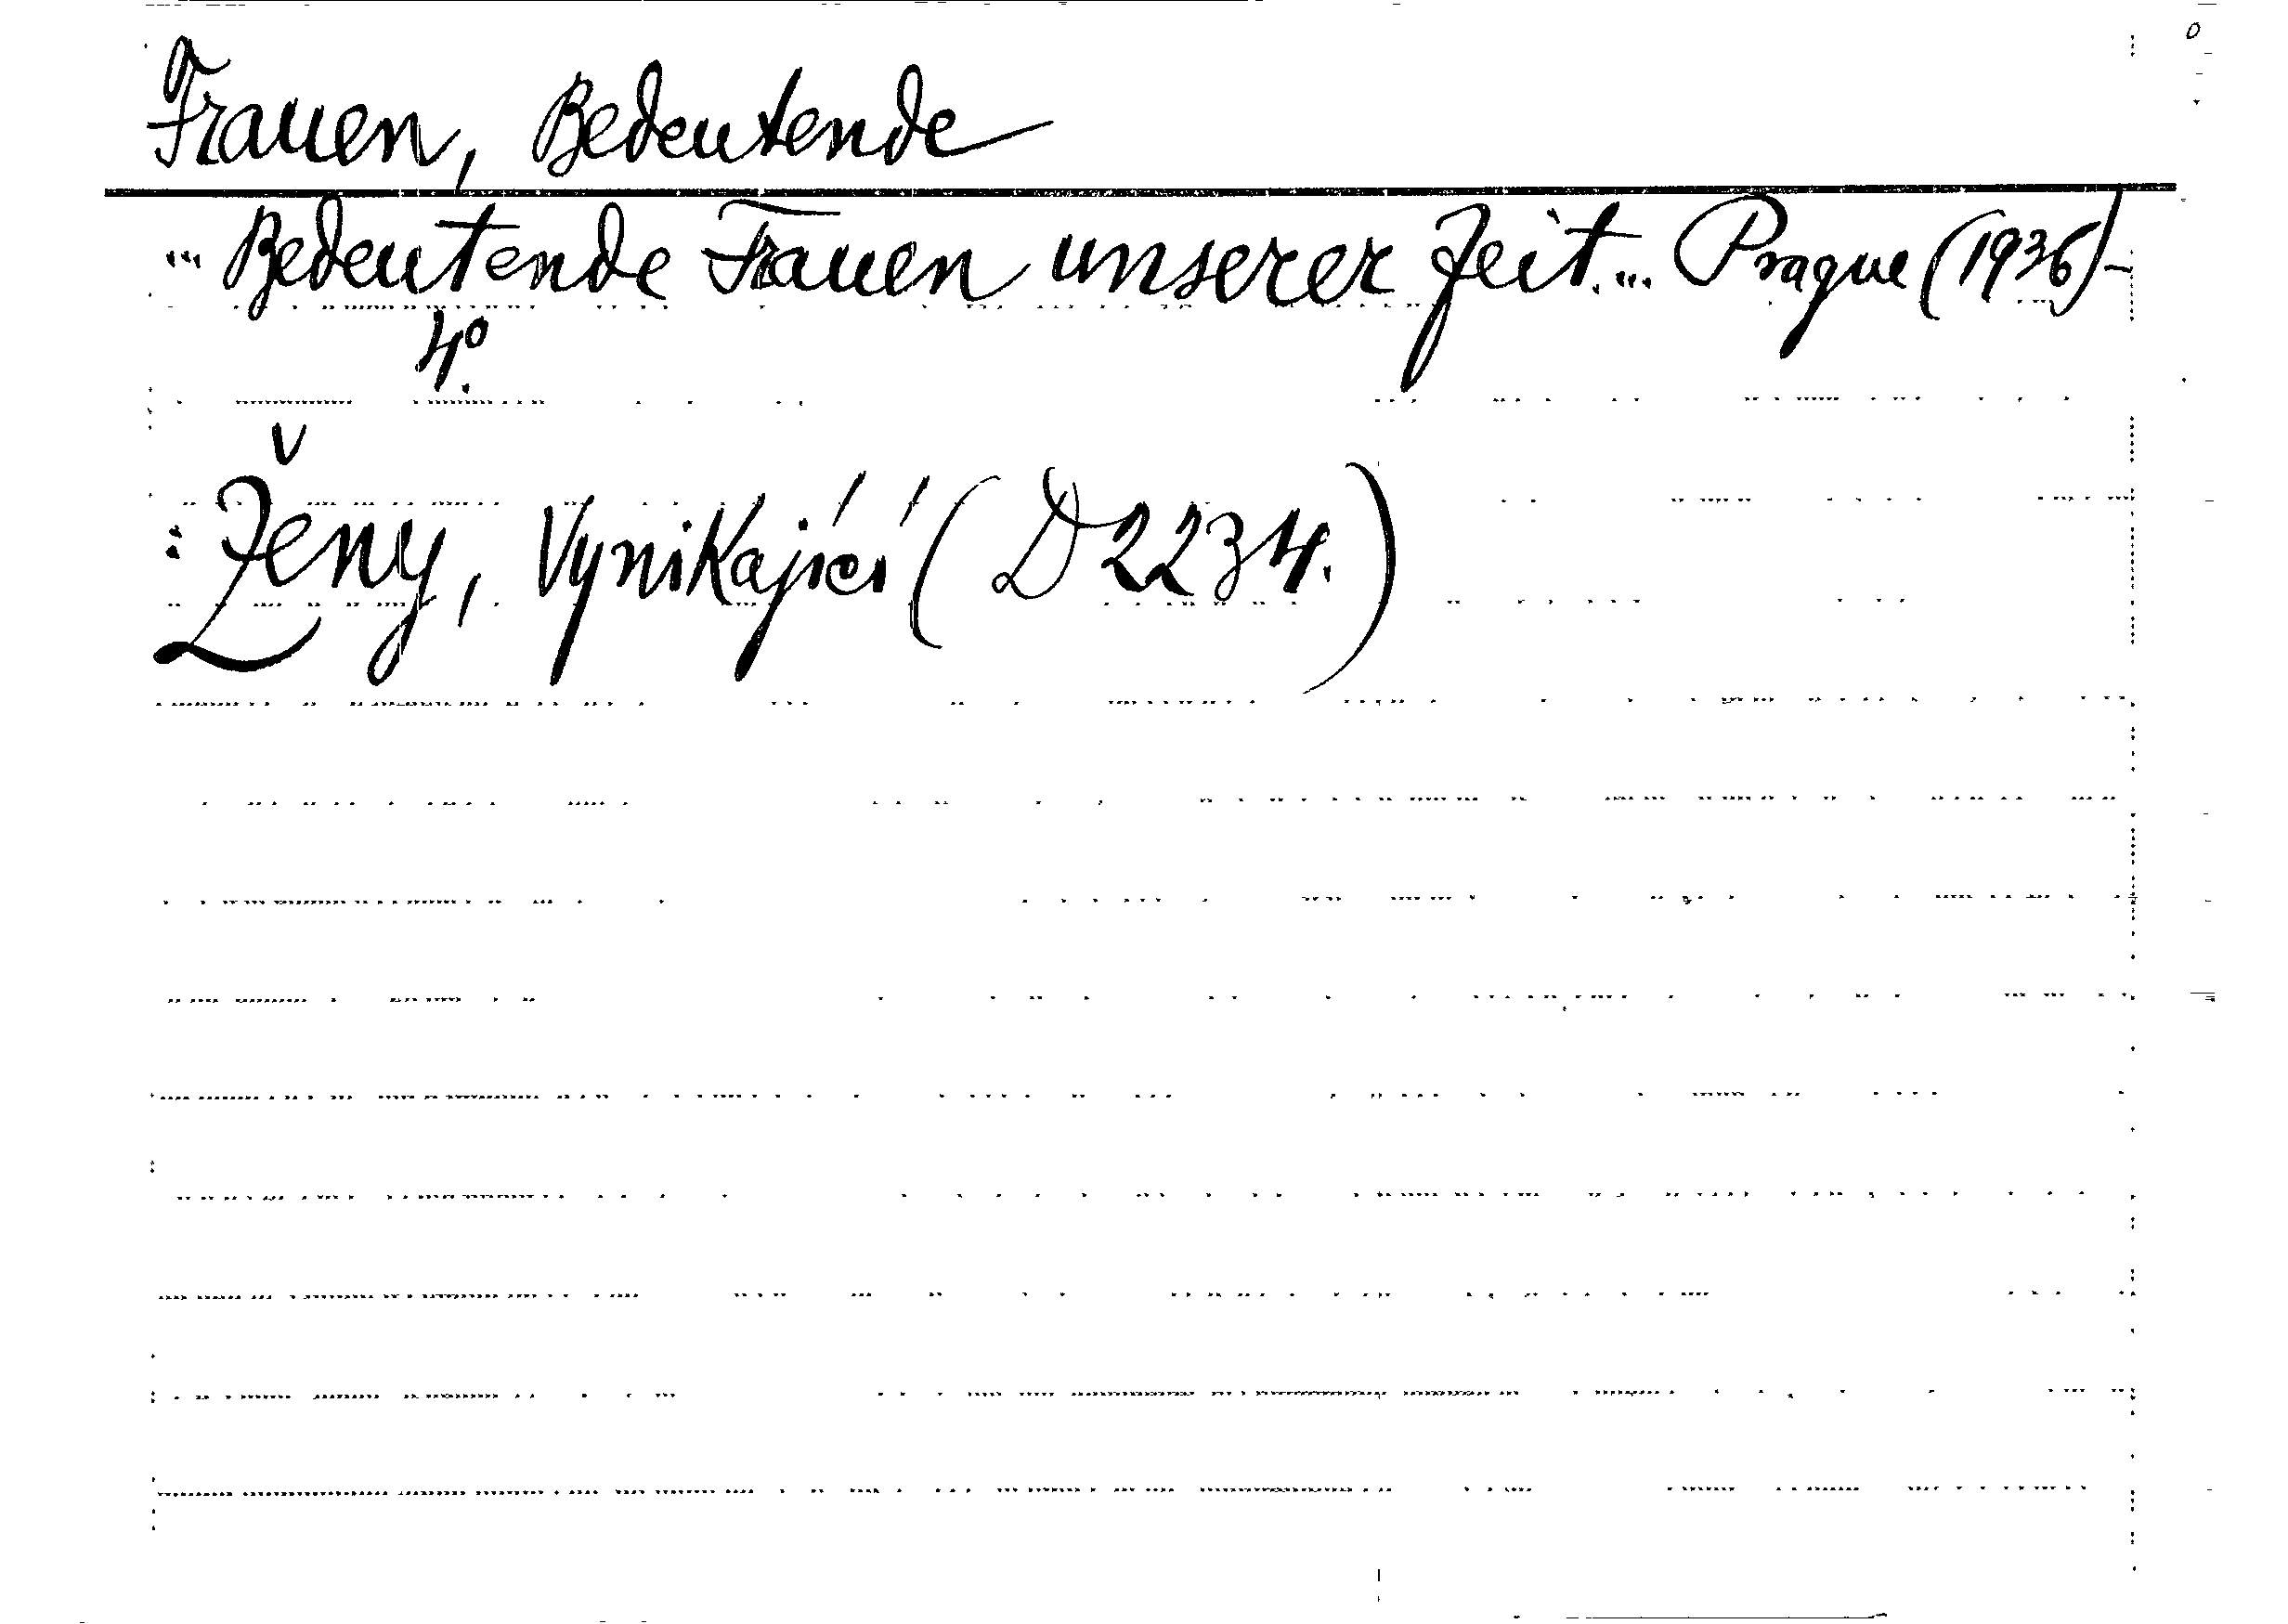 Frauen, Bedeutende
... Bedeutende Frauen unserer Zeit.... Prague (1936)-
4º.
: Ženy, Vynikající (D 2234.)